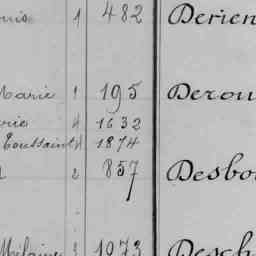 1 482 Derien
Marie 1 195 Derou
4 1632
Toussaint 4 1874
2 857 Desbo
3 1073 Desch